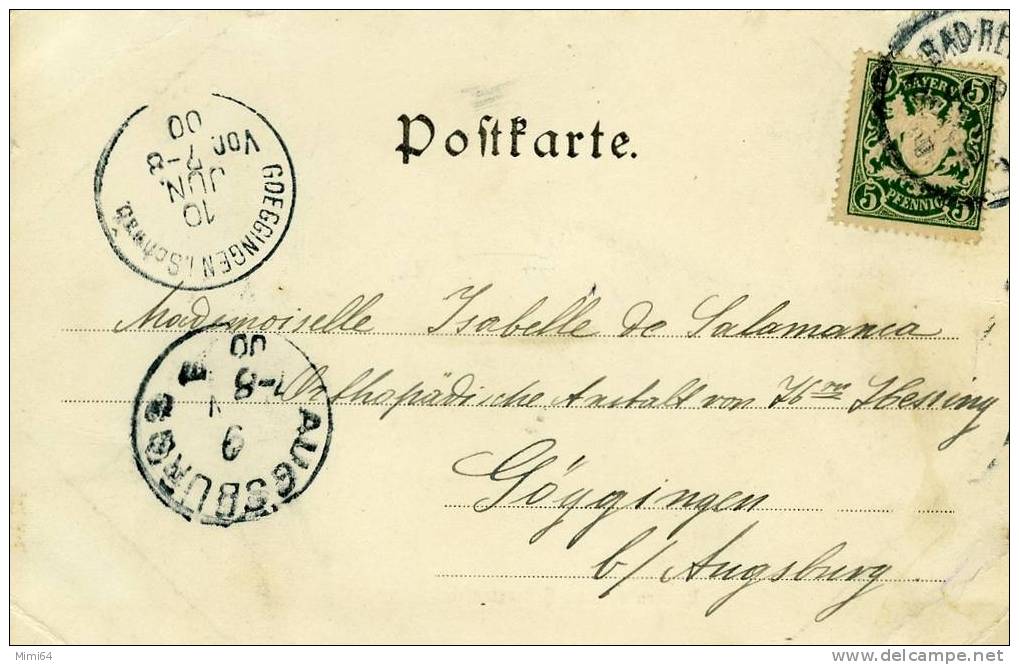 Postkarte.
BAD·RE
BAYERN
5 5
5 5
PFENNIG
GOEGGINGEN i. Schwab.
10
JUN
7-8
Vor.
00
Mademoiselle Isabelle de Salamanca
Orthopädische Anstalt von Hrn Hessing
Göggingen
b/ Augsburg
AUGSBURG
9
7-8
00
Mimi64
www.delcampe.net